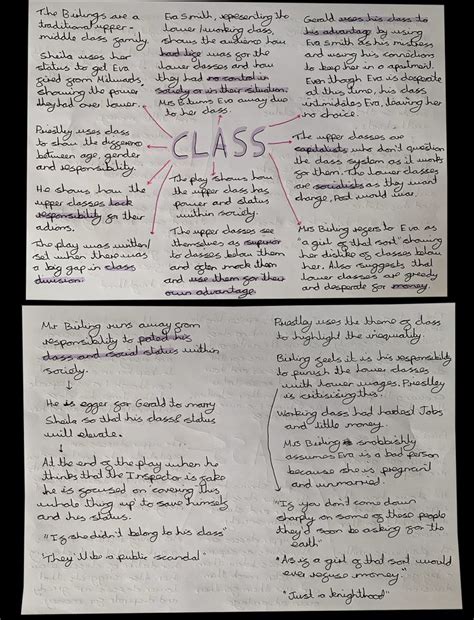 The Birlings are a
traditional upper-
middle class family.
Sheila uses her
status to get Eva
fired from Milwards,
showing the power
they had over lower.
Eva Smith, representing the
lower/working class,
shows the audience how
bad life was for the
lower classes and how
they had no control in
society or in their situation.
Mrs B turns Eva away due
to her class.
Gerald uses his class to
his advantage by using
Eva Smith as his mistress
and using his connections
to keep her in a apartment.
Even though Eva is desperate
at this time, his class
intimidates Eva, leaving her
no choice.
Priestley uses class
to show the difference
between age, gender
and responsibility.
CLASS
The upper classes are
capitalists who don't question
the class system as it works
for them. The lower classes
are socialists as they want
change, Post world war.
He shows how the
upper classes lack
responsibility for their
actions.
The play shows how
the upper class has
power and status
within society.
The play was written/
set when there was
a big gap in class
division.
The upper classes see
themselves as superior
to classes below them
and often mock them
and use them for their
own advantage.
Mrs Birling refers to Eva as
"a girl of that sort" showing
her dislike of classes below
her. Also suggests that
lower classes are greedy
and desperate for money.
Mr Birling runs away from
responsibility to
class and social status within
society.
He is egger for Gerald to marry
Sheila so that his class & status
will elevate.
At the end of the play when he
thinks that the Inspector is fake
he is focused on covering this
whole thing up to save himself
and his status.
"If she didn't belong to his class"
'They'll be a public scandal'
Priestley uses the theme of class
to highlight the inequality.
Birling feels it is his responsibility
to punish the lower classes
with lower wages. Priestley
is criticising this.
Working class had hardest Jobs
and little money.
Mrs Birling snobbishly
assumes Eva is a bad person
because she is pregnant
and unmarried.
"If you don't come down
sharply on some of these people
they'd soon be asking for the
earth"
"As if a girl of that sort would
ever refuse money."
"Just a knighthood"